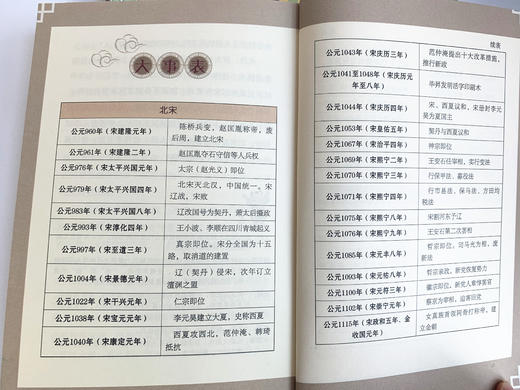 大事表
北宋
公元960年（宋建隆元年）
陈桥兵变，赵匡胤称帝，废
后周，建立北宋
公元961年（宋建隆二年）
赵匡胤夺石守信等人兵权
公元976年（宋太平兴国元年）
太宗（赵光义）即位
公元979年（宋太平兴国四年）
北宋灭北汉，中国统一。宋
辽战，宋败
公元983年（宋太平兴国八年）
辽改国号为契丹，萧太后摄政
公元993年（宋淳化四年）
王小波、李顺在四川青城起义
公元997年（宋至道三年）
真宗即位。宋分全国为十五
路，取消道的建置
公元1004年（宋景德元年）
辽（契丹）侵宋，次年订立
澶渊之盟
公元1022年（宋干兴元年）
仁宗即位
公元1038年（宋宝元元年）
李元昊建立大夏，史称西夏
公元1040年（宋康定元年）
西夏攻西北，范仲淹、韩琦
抵抗
续表
公元1043年（宋庆历三年）
范仲淹提出十大改革措施，
推行新政
公元1041至1048年（宋庆历元
年至八年）
毕昇发明活字印刷术
公元1044年（宋庆历四年）
宋、西夏议和，宋册封李元
昊为夏国主
公元1053年（宋皇祐五年）
契丹与西夏议和
公元1067年（宋治平四年）
神宗即位
公元1069年（宋熙宁二年）
王安石任宰相，实行变法
公元1070年（宋熙宁三年）
行保甲法、募役法
公元1072年（宋熙宁五年）
行市易法、保马法、方田均
税法
公元1075年（宋熙宁八年）
宋割河东予辽
公元1076年（宋熙宁九年）
王安石第二次罢相
公元1085年（宋元丰八年）
哲宗即位，司马光为相，废
新法
公元1093年（宋元祐八年）
哲宗亲政，新党恢复势力
公元1100年（宋元符三年）
徽宗即位，新党人章惇罢官
公元1102年（宋崇宁元年）
蔡京为宰相，迫害旧党
公元1115年（宋政和五年、金
收国元年）
女真族首领阿骨打称帝，建
立金朝